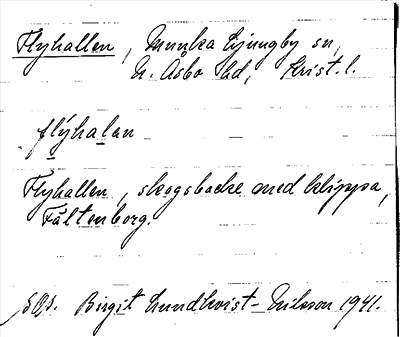 Flyhallen, Munka Ljungby sn,
N. Åsbo hd, Krist. l.
flýhalan
Flyhallen, skogsbacke med klippa,
Fältenborg.
SOS. Birgit Lundkvist-Eriksson 1941.